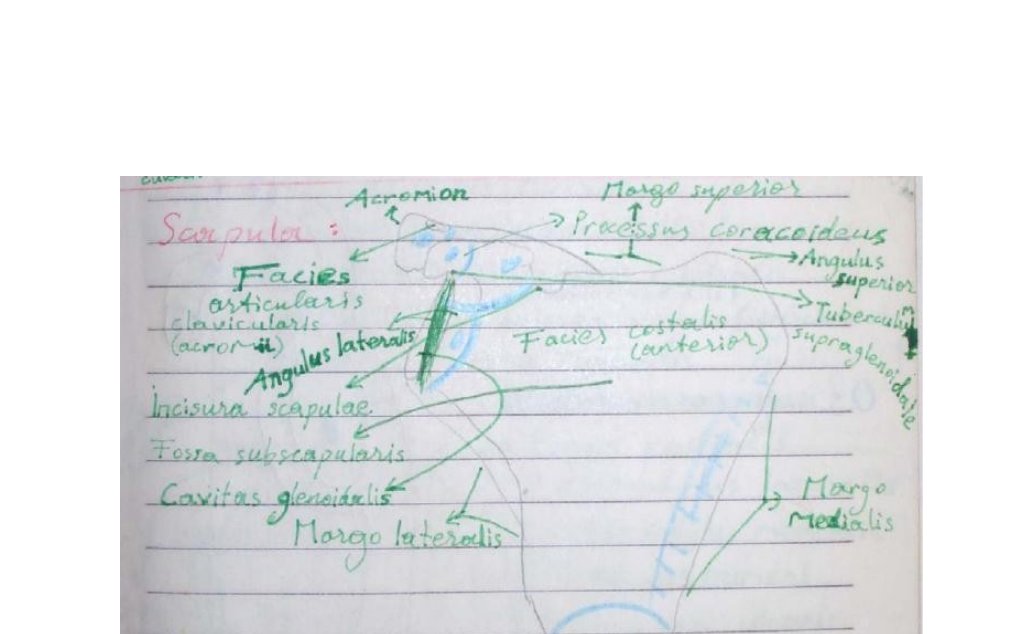 Acromion
Margo superior
Scapula :
Processus coracoideus
Angulus
superior
Facies
articularis
clavicularis
(acromii)
Tuberculum
supraglenoidale
Facies costalis
(anterior)
Angulus lateralis
Incisura scapulae
Fossa subscapularis
Cavitas glenoidalis
Margo
medialis
Margo lateralis